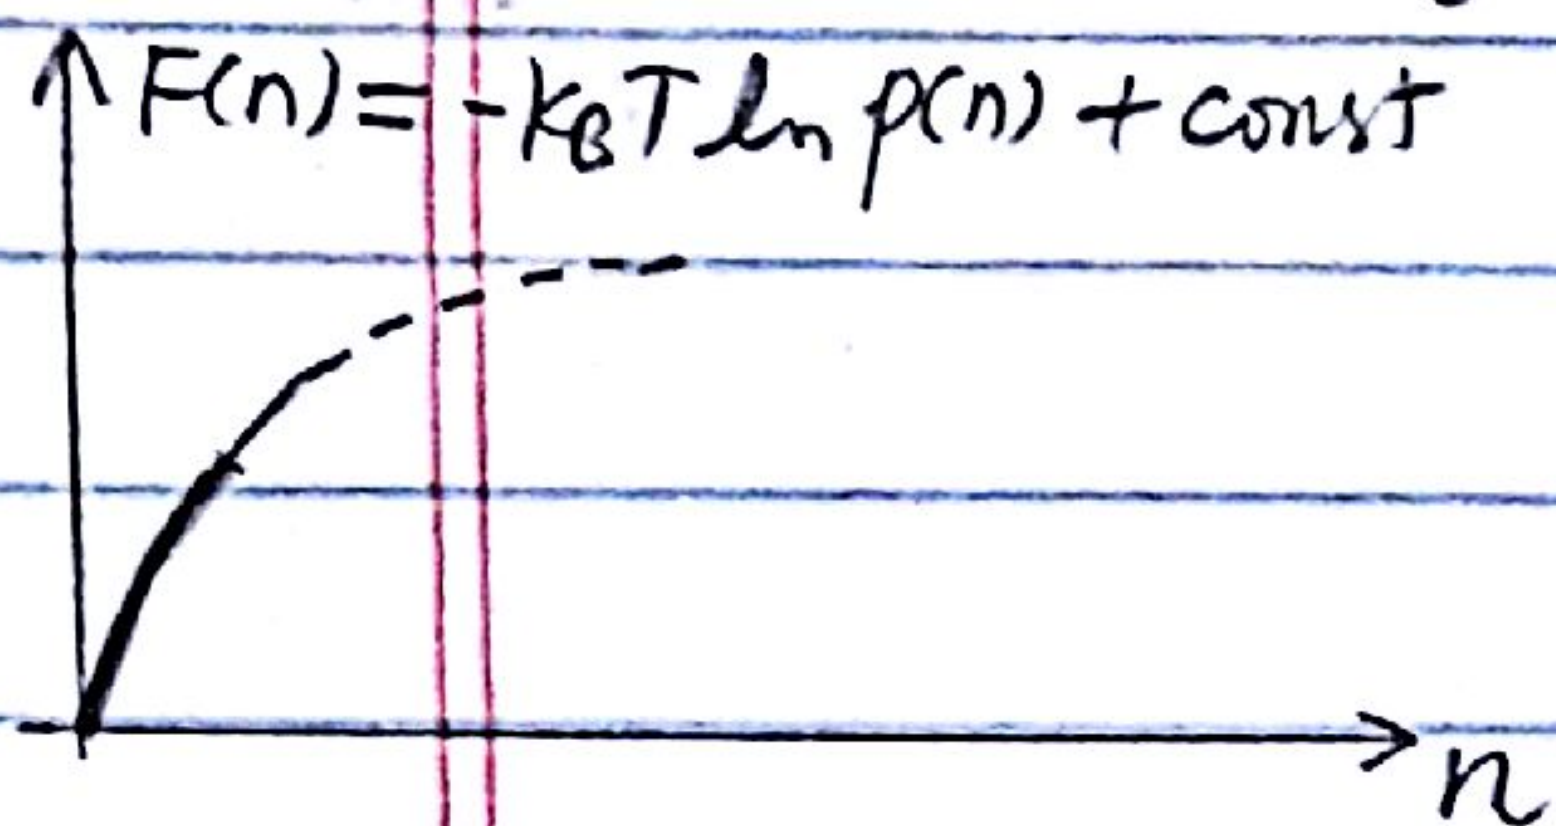 F(n) = -k_BT ln p(n) + const
n